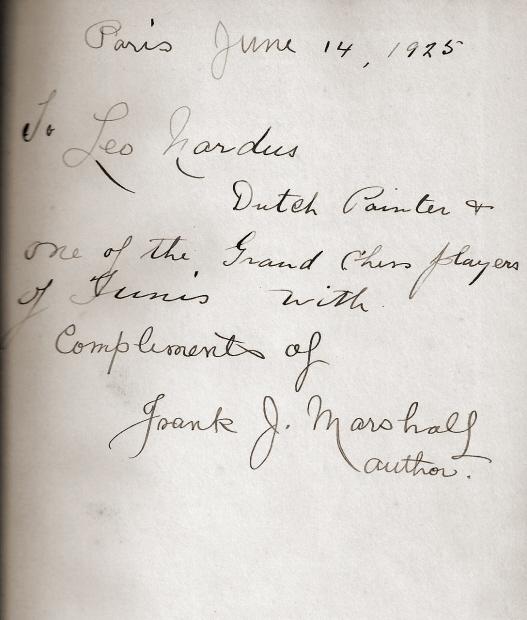 Paris June 14, 1925
To Leo Nardus
Dutch Painter &
one of the Grand Chess players
of Tunis with
Compliments of
Frank J. Marshall
author.